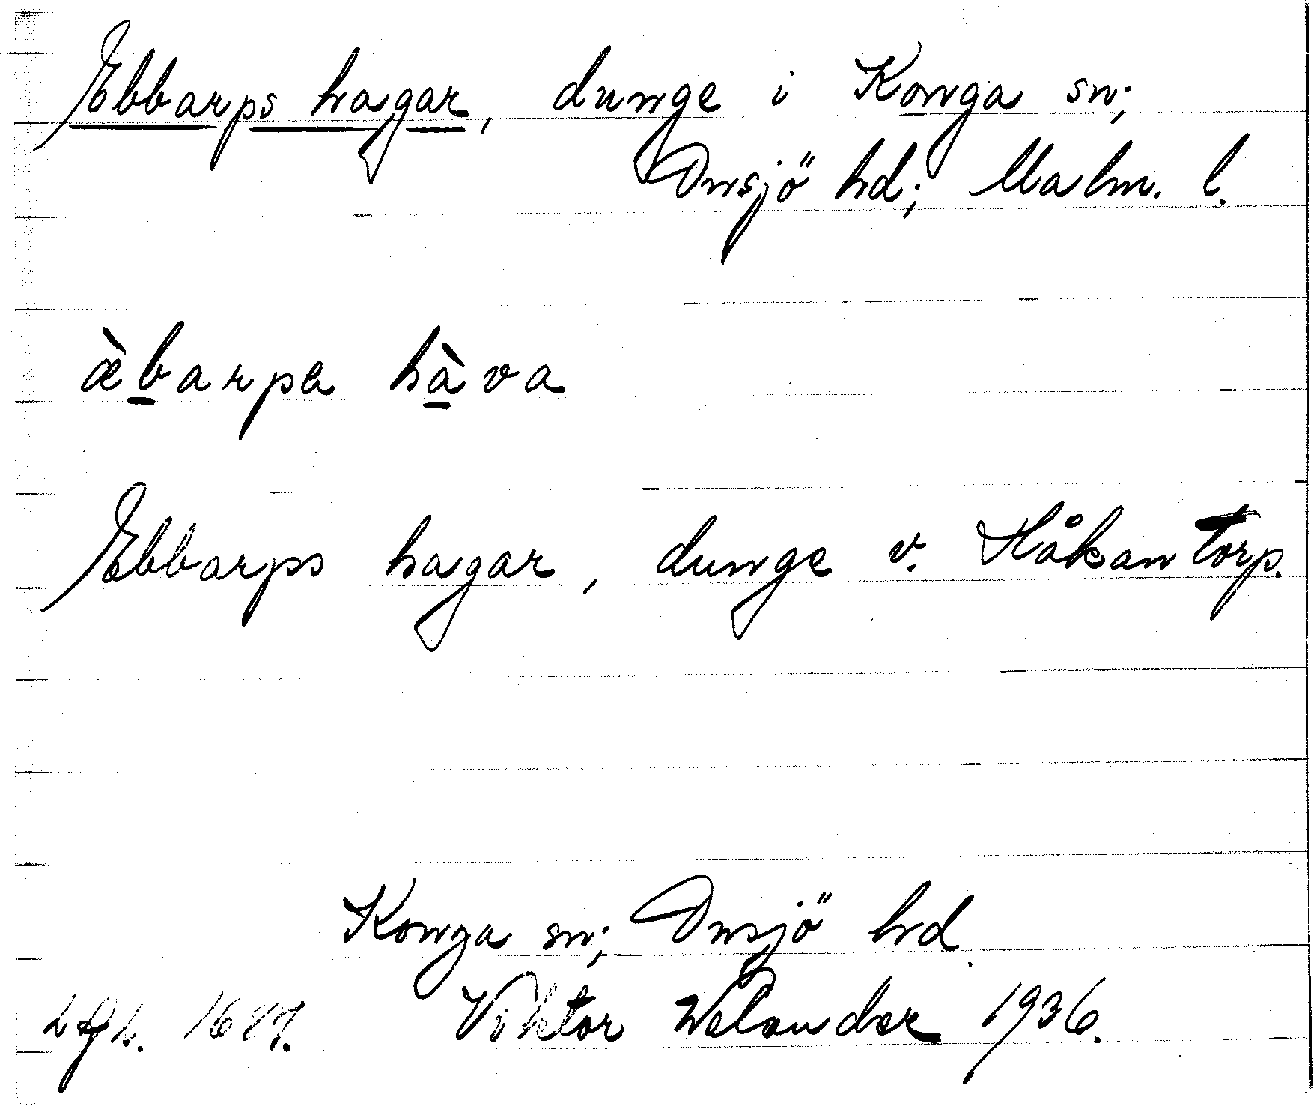 Ebbarps hagar, dunge i Konga sn;
Onsjö hd; Malm. l.
æ̀barpa hàva
Ebbarps hagar, dunge v. Håkantorp.
Konga sn; Onsjö hd.
1687. Viktor Welander 1936.